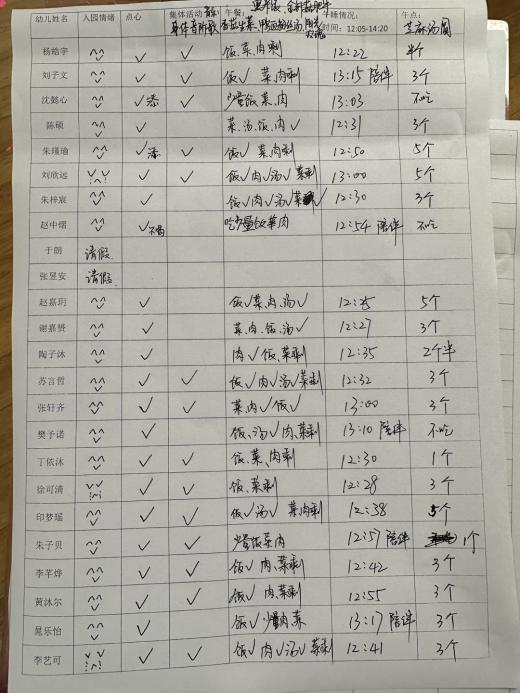 幼儿姓名 入园情绪 点心 集体活动 午餐: 午睡情况: 午点:
身体音阶歌 香菇生菜, 鸭血粉丝汤, 时间: 12:05-14:20 芝麻汤圆
杨皓宇 ✓ ✓ 饭、菜、肉剩 12:22 半个
刘子文 ✓ ✓ 饭✓ 菜、肉剩 13:15 陪伴 3个
沈懿心 ✓添 ✓ 少量饭、菜、肉 13:03 不吃
陈硕 ✓ 菜、汤、饭、肉✓ 12:31 3个
朱瑾瑜 ✓添 ✓ 饭✓ 菜、肉剩 12:50 5个
刘欣远 ✓ ✓ 饭✓肉✓汤✓菜剩 13:00 5个
朱梓宸 ✓ ✓ 饭✓肉✓汤✓菜剩 12:30 3个
赵中熠 ✓不喝 吃少量饭菜肉 12:54 陪伴 不吃
于朗 请假
张昱安 请假
赵嘉玥 ✓ 饭✓菜、肉、汤✓ 12:25 5个
谢嘉赟 ✓ 菜、肉、饭、汤✓ 12:27 3个
陶子沐 ✓ 肉✓饭、菜剩 12:35 2个半
苏言哲 ✓ ✓ 饭✓肉✓汤✓菜剩 12:32 3个
张轩齐 ✓ ✓ 菜、肉✓饭✓ 13:00 3个
樊子诺 ✓ 饭、汤✓肉、菜剩 13:10 陪伴 不吃
丁依沐 ✓ ✓ 饭、菜、肉剩 12:30 1个
徐可清 ✓ ✓ 饭、菜剩 12:28 3个
印梦瑶 ✓ ✓ 饭✓汤✓ 菜肉剩 12:38 5个
朱子贝 ✓ ✓ 少量饭菜肉 12:57 陪伴 1个
李芊烨 ✓ ✓ 饭✓ 肉、菜剩 12:42 3个
黄沐尔 ✓ ✓ 饭✓ 肉、菜剩 12:55 3个
晁乐怡 ✓ 饭✓ 少量肉、菜 13:17 陪伴 3个
李艺可 ✓ ✓ 饭✓肉✓汤✓菜剩 12:41 3个